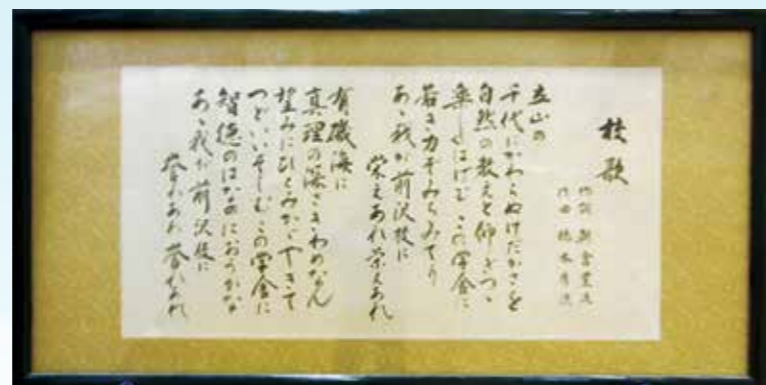 校歌
作詞
作曲
立山の
千代にかわらぬけだかさを
自然の教えと仰ぎつつ
はげむ この学舎に
若き力ぞみちみてり
あゝ我が前沢校に
栄えあれ栄えあれ
有磯海に
真理の深さきわめなん
望みにひとみかがやきて
つどいいそしむこの学舎に
智徳のはなのにおうかな
あゝ我が前沢校に
誉れあれ 誉れあれ